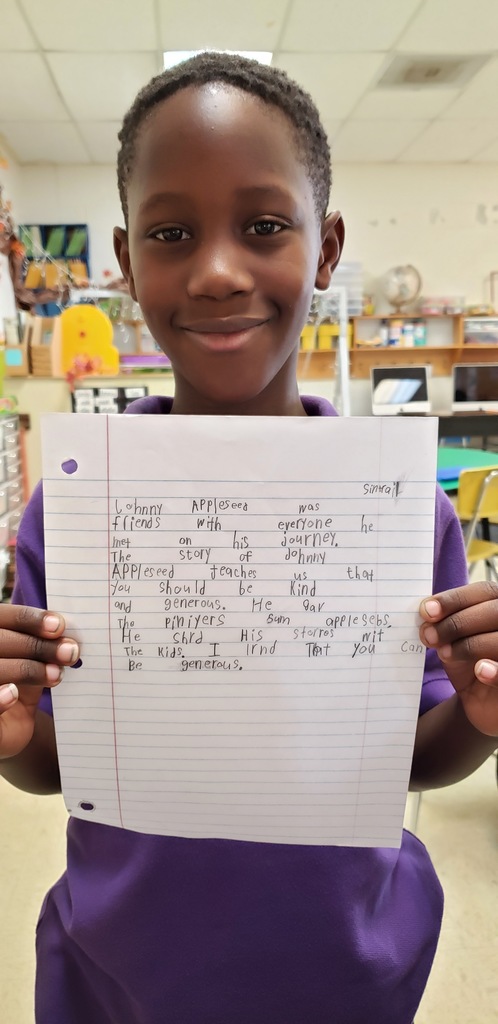 Sintrail
Johnny APPleseed was
friends with everyone he
met on his Journey.
The story of Johnny
APPleseed teaches us that
you should be kind
and generous. He gav
The piniyers sum applesebs.
He shrd His storros wit
The Kids. I lrnd That you can
Be generous.